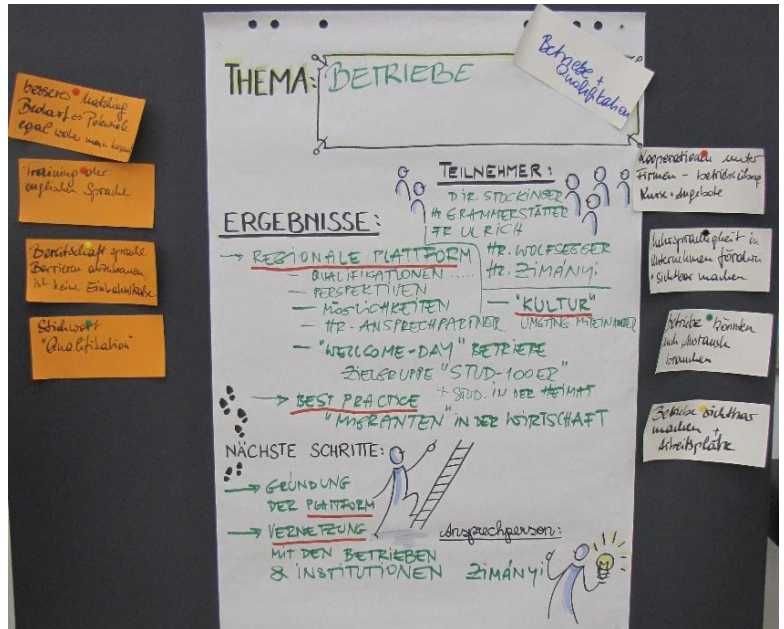 besseres Matching
Bedarf ↔ Potenziale
egal woher man kommt
Training der
englischen Sprache
Bereitschaft sprachl.
Barrieren abzubauen,
ist keine Einbahnstraße
Stichwort
"Qualifikation"
THEMA: BETRIEBE
Betriebe +
Qualifikation
TEILNEHMER:
DIR. STOCKINGER
Hr GRAMMERSTÄTTER
FR ULRICH
HR. WOLFSEGGER
HR. ZIMÁNYI
ERGEBNISSE:
→ REGIONALE PLATTFORM
– QUALIFIKATIONEN .....
– PERSPEKTIVEN
– MÖGLICHKEITEN
– HR-ANSPRECHPARTNER
– "KULTUR"
UMGANG MITEINANDER
– "WELLCOME-DAY" BETRIEBE
ZIELGRUPPE "STUD-100ER"
+ STUD. IN DER HEIMAT
→ BEST PRACTICE
"MIGRANTEN" IN DER WIRTSCHAFT
NÄCHSTE SCHRITTE:
→ GRÜNDUNG
DER PLATTFORM
→ VERNETZUNG
MIT DEN BETRIEBEN
& INSTITUTIONEN
Ansprechperson:
ZIMÁNYI
Kooperationen unter
Firmen – betriebsübergr.
Kurse + Angebote
Mehrsprachigkeit in
Unternehmen fördern
+ sichtbar machen
Betriebe könnten
auch
brauchen
Betriebe sichtbar
machen +
Arbeitsplätze